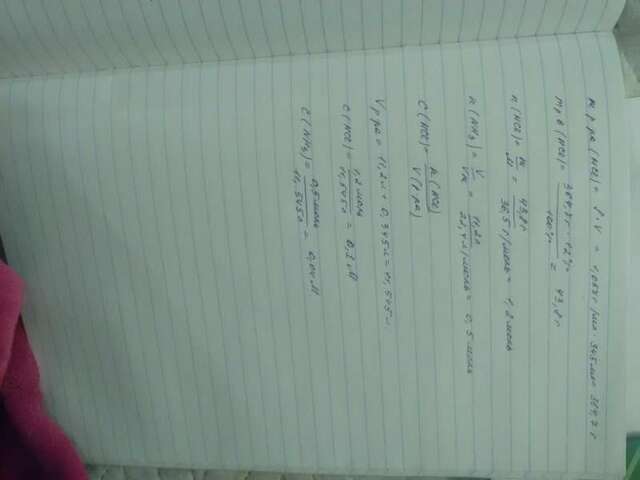 m р-ра (HCl) = ρ·V = 1,057 г/мл · 345 мл = 364,7 г
m р.в (HCl) = 364,7 г · 12% / 100% = 43,8 г
n (HCl) = m / M = 43,8 г / 36,5 г/моль = 1,2 моль
n (NH₃) = V / Vm = 11,2 л / 22,4 л/моль = 0,5 моль
C (HCl) = n (HCl) / V (р-ра)
V р-ра = 11,2 л + 0,345 л = 11,545 л
C (HCl) = 1,2 моль / 11,545 л = 0,1 М
C (NH₃) = 0,5 моль / 11,545 л = 0,04 М